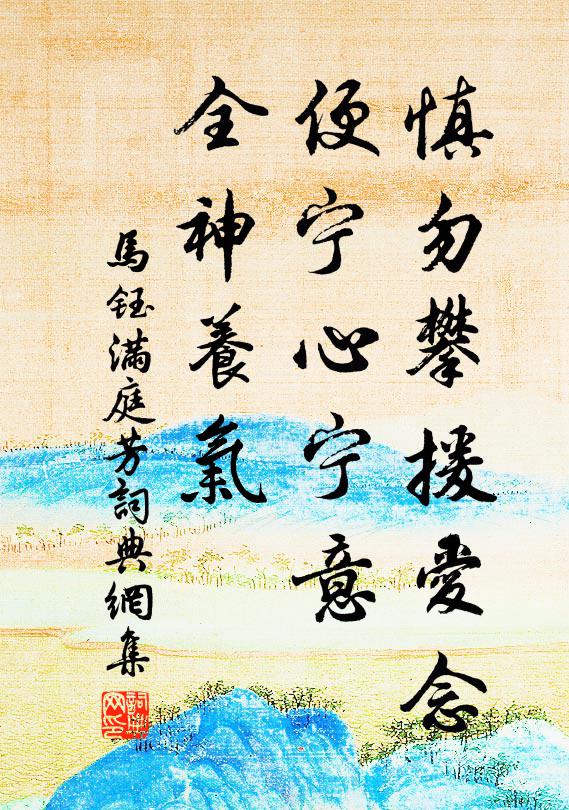 慎勿攀援愛念
便宁心宁意
全神養氣
馬鈺滿庭芳詞典網集